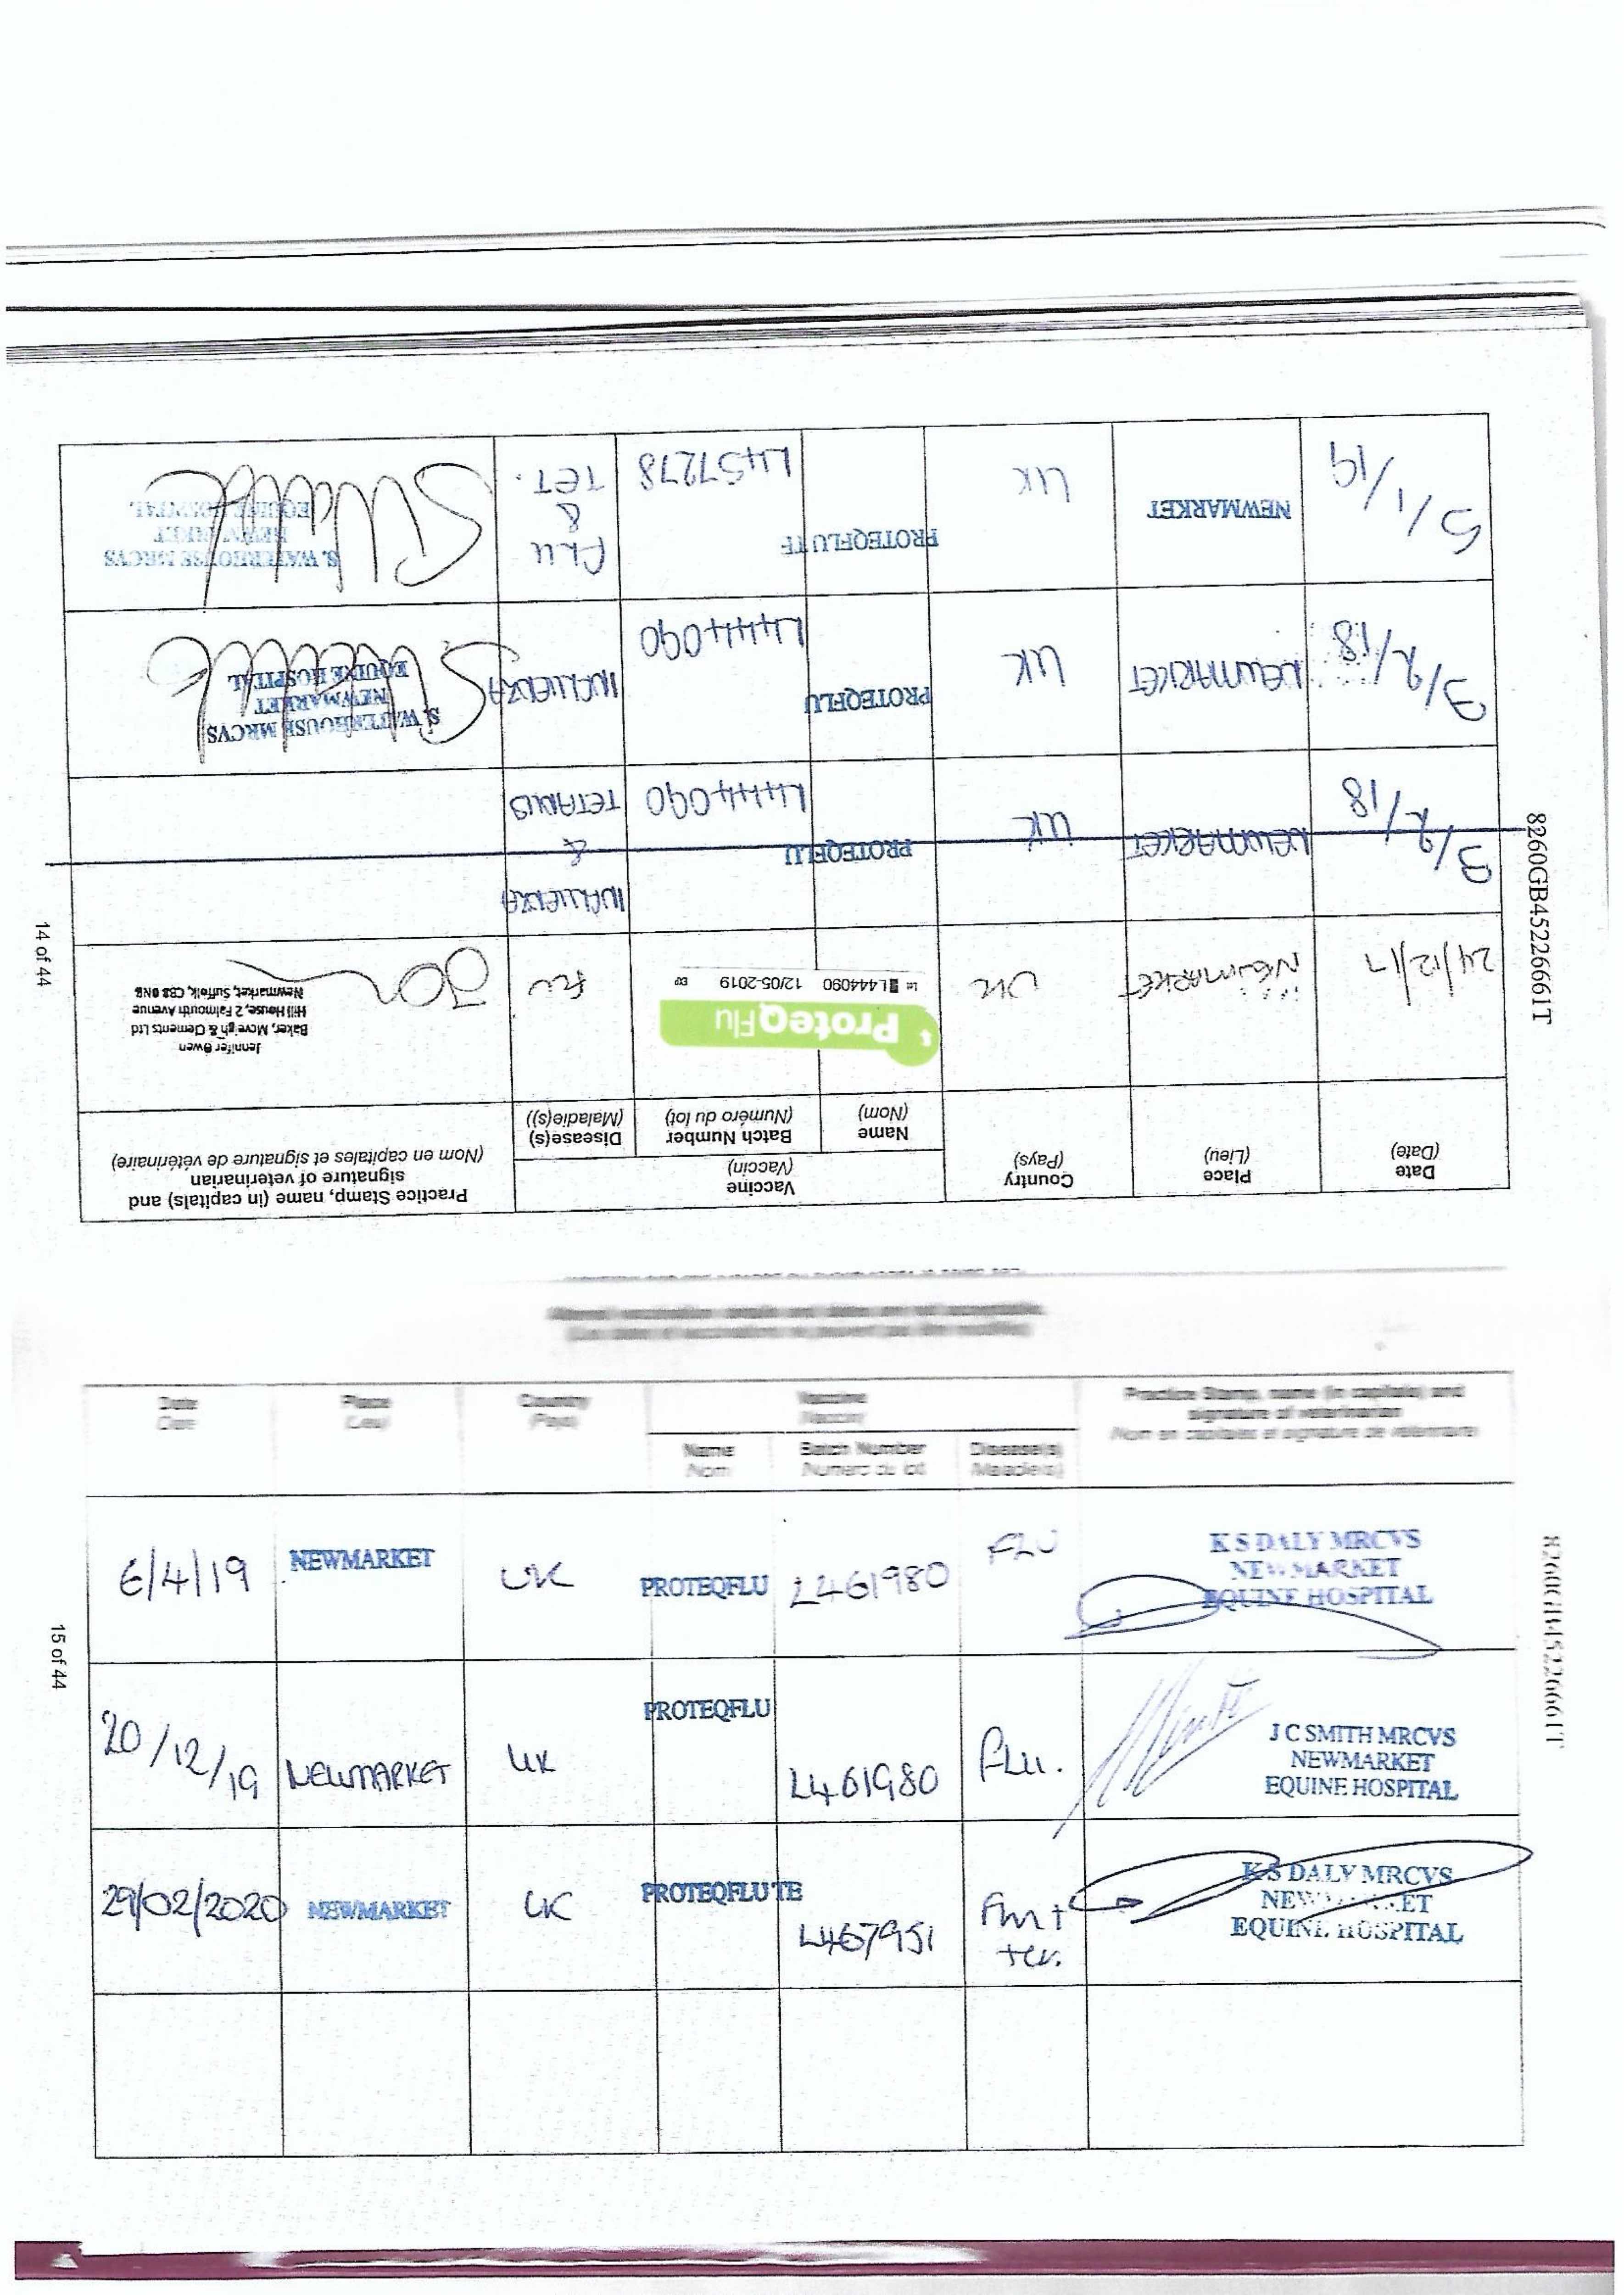 Date
(Date)
Place
(Lieu)
Country
(Pays)
Vaccine
(Vaccin)
Name
(Nom)
Batch Number
(Numéro du lot)
Disease(s)
(Maladie(s))
Practice Stamp, name (in capitals) and
signature of veterinarian
(Nom en capitales et signature de vétérinaire)
24/12/17
NEWMARKET
UK
ProteqFlu
Lot L444090 12/05-2019 EXP
FLU
Jennifer Owen
Baker, Mcveigh & Clements Ltd
Hill House, 2 Falmouth Avenue
Newmarket, Suffolk, CB8 0NG
3/2/18
NEWMARKET
UK
PROTEQFLU
L444090
INFLUENZA
&
TETANUS
3/2/18
NEWMARKET
UK
PROTEQFLU
L444090
INFLUENZA
S. WATERHOUSE MRCVS
NEWMARKET
EQUINE HOSPITAL
5/1/19
NEWMARKET
UK
PROTEQFLU TE
L457278
FLU
&
TET.
S. WATERHOUSE MRCVS
NEWMARKET
EQUINE HOSPITAL
8260GB45226661T
14 of 44
Date
Place
Country
Vaccine
Name
Nom
Batch Number
Numéro du lot
Disease(s)
Practice Stamp, name (in capitals) and
signature of veterinarian
Nom en capitales et signature de vétérinaire
6/4/19
NEWMARKET
UK
PROTEQFLU
L461980
FLU
K S DALY MRCVS
NEWMARKET
EQUINE HOSPITAL
20/12/19
NEWMARKET
UK
PROTEQFLU
L461980
FLU.
J C SMITH MRCVS
NEWMARKET
EQUINE HOSPITAL
29/02/2020
NEWMARKET
UK
PROTEQFLU TE
L467951
K S DALY MRCVS
NEWMARKET
EQUINE HOSPITAL
8260GB45226661T
15 of 44